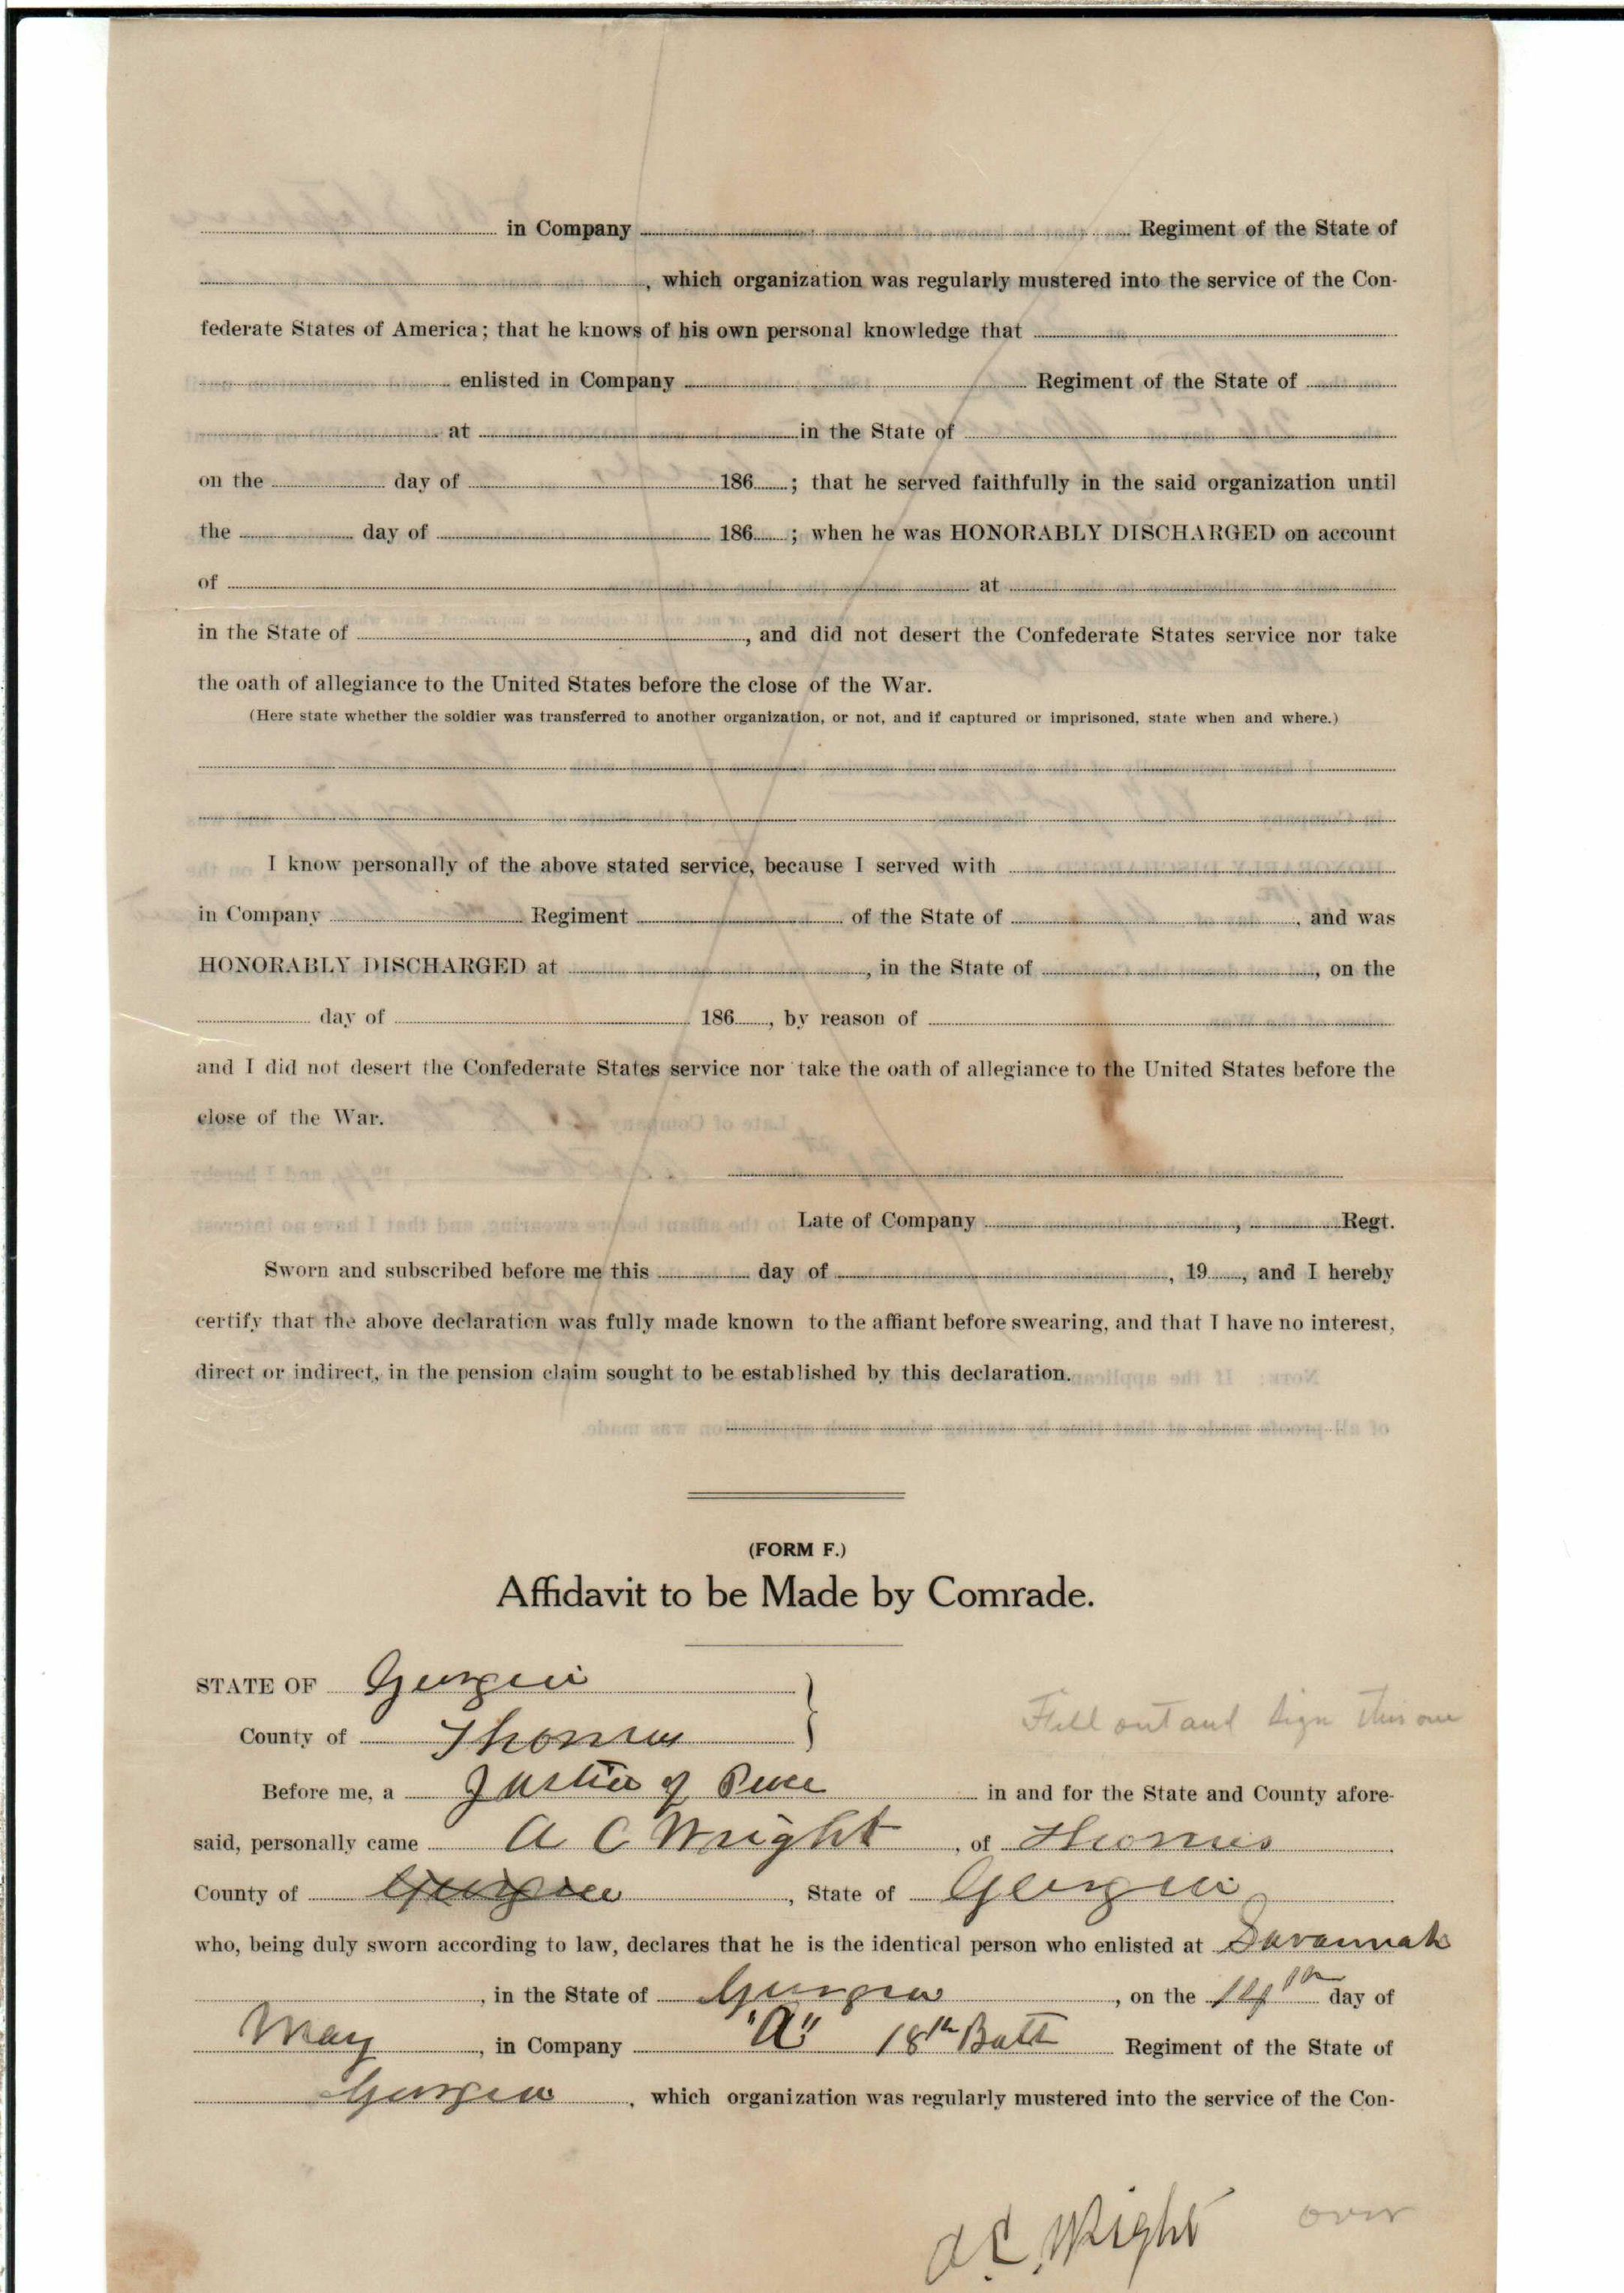 in Company Regiment of the State of
, which organization was regularly mustered into the service of the Con-
federate States of America; that he knows of his own personal knowledge that
enlisted in Company Regiment of the State of
at in the State of
on the day of 186 ; that he served faithfully in the said organization until
the day of 186 ; when he was HONORABLY DISCHARGED on account
of at
in the State of , and did not desert the Confederate States service nor take
the oath of allegiance to the United States before the close of the War.
(Here state whether the soldier was transferred to another organization, or not, and if captured or imprisoned, state when and where.)
I know personally of the above stated service, because I served with
in Company Regiment of the State of , and was
HONORABLY DISCHARGED at , in the State of , on the
day of 186 , by reason of
and I did not desert the Confederate States service nor take the oath of allegiance to the United States before the
close of the War.
Late of Company , Regt.
Sworn and subscribed before me this day of , 19 , and I hereby
certify that the above declaration was fully made known to the affiant before swearing, and that I have no interest,
direct or indirect, in the pension claim sought to be established by this declaration.
(FORM F.)
Affidavit to be Made by Comrade.
STATE OF Georgia
County of Thomas
Fill out and sign this one
Before me, a Justice of Peace in and for the State and County afore-
said, personally came A C Wright , of Thomas
County of Georgia , State of Georgia
who, being duly sworn according to law, declares that he is the identical person who enlisted at Savannah
, in the State of Georgia , on the 14th day of
May , in Company "A" 18th Batt Regiment of the State of
Georgia , which organization was regularly mustered into the service of the Con-
A C Wright over